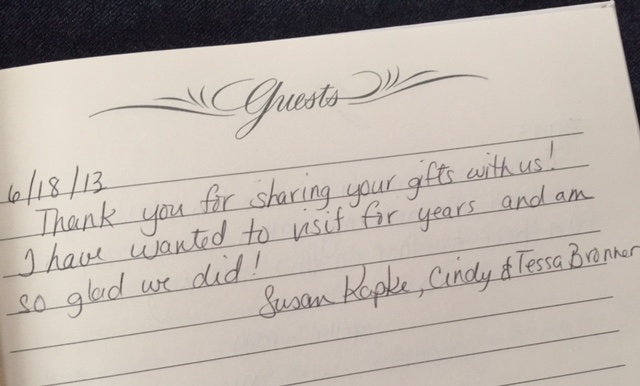 Guests
6/18/13
Thank you for sharing your gifts with us!
I have wanted to visit for years and am
so glad we did!
Susan Kapke, Cindy & Tessa Bronner